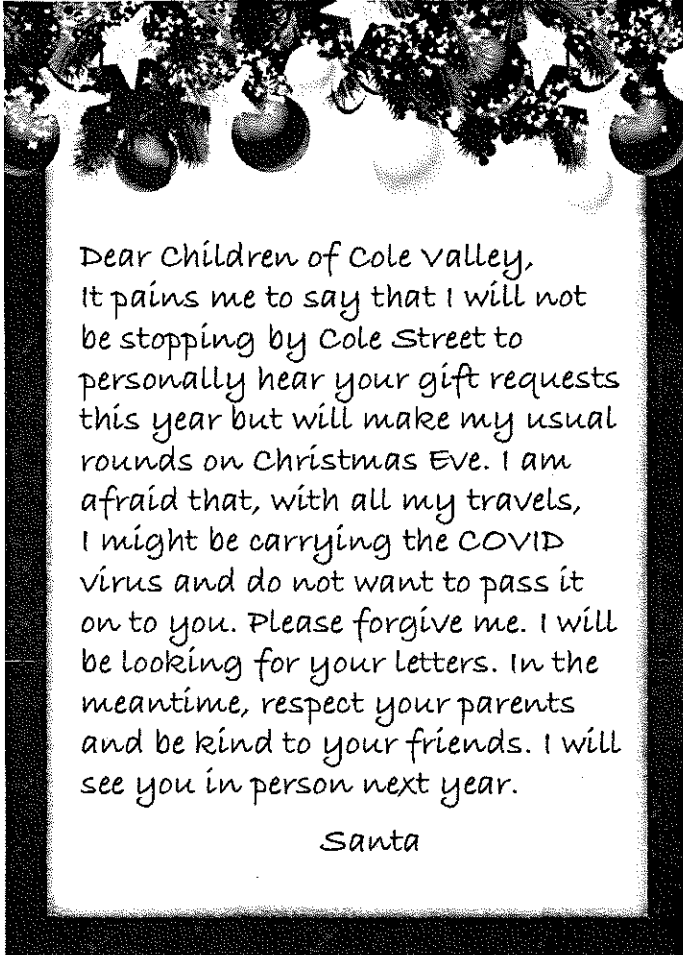 Dear Children of Cole Valley,
It pains me to say that I will not
be stopping by Cole Street to
personally hear your gift requests
this year but will make my usual
rounds on Christmas Eve. I am
afraid that, with all my travels,
I might be carrying the COVID
virus and do not want to pass it
on to you. Please forgive me. I will
be looking for your letters. In the
meantime, respect your parents
and be kind to your friends. I will
see you in person next year.
Santa